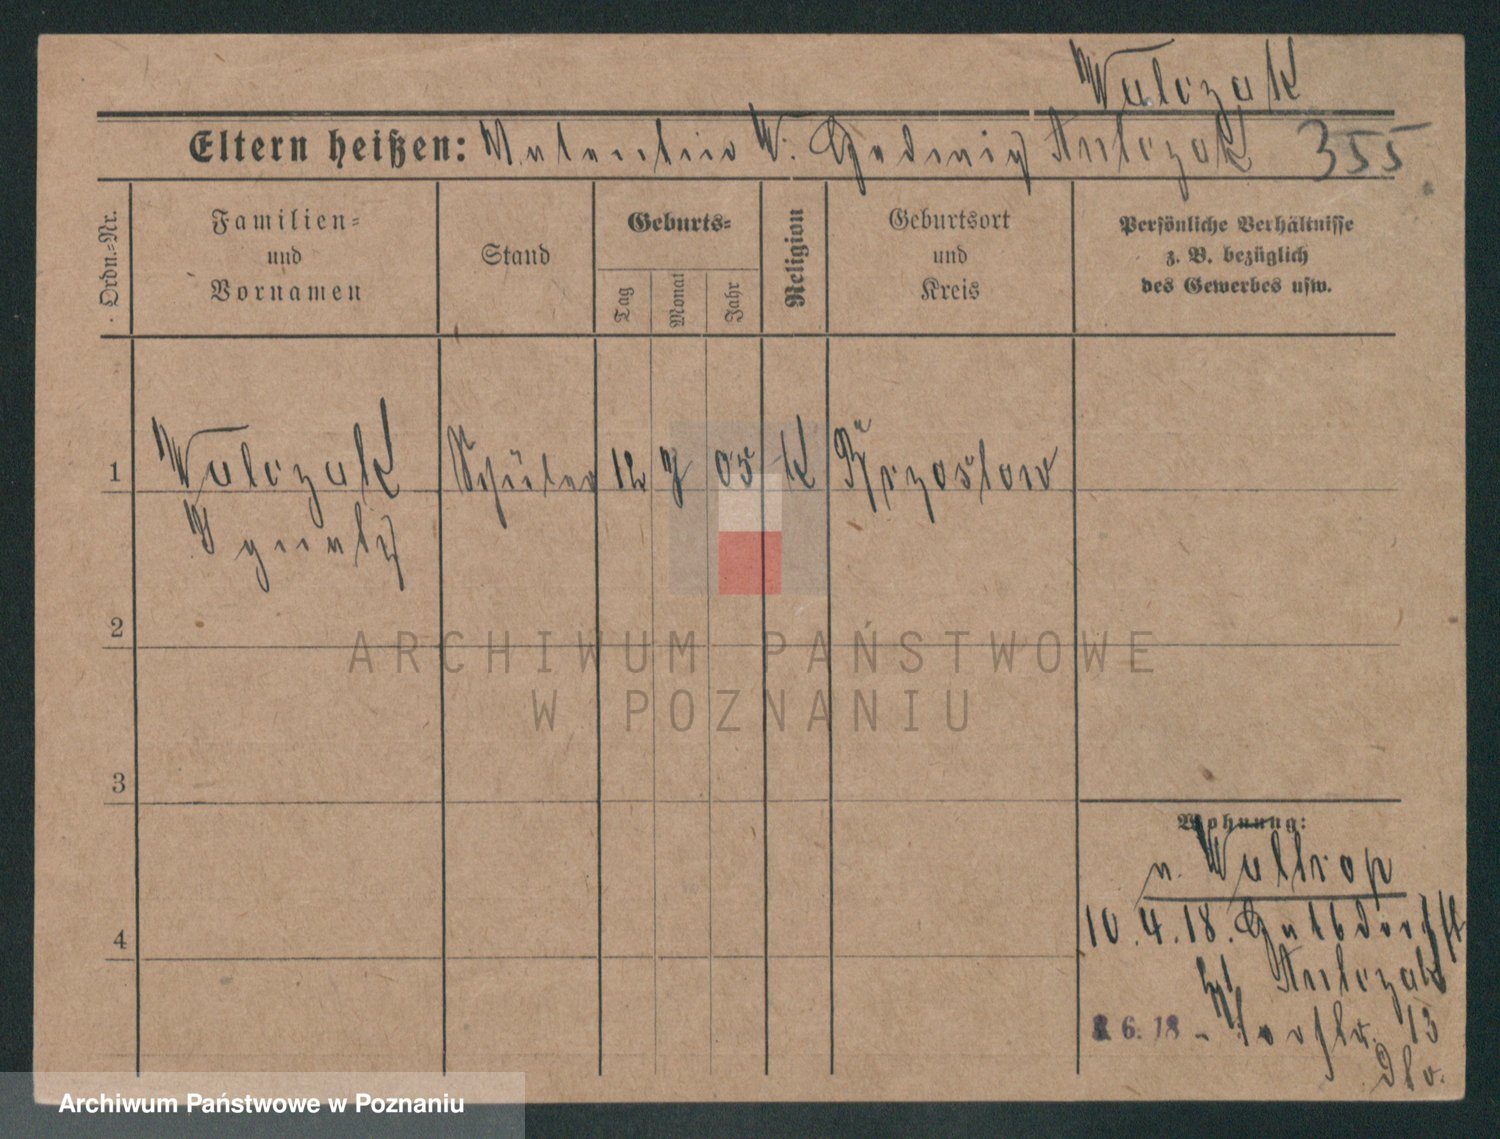 Walczak
Eltern heißen: Valentin W. Hedwig Antczak 355
Ordn.=Nr.
Familien=
und
Vornamen
Stand
Geburts=
Tag
Monat
Jahr
Religion
Geburtsort
und
Kreis
Persönliche Verhältnisse
z. B. bezüglich
des Gewerbes usw.
1 Walczak Schüler 12 7 05 K
Ignatz
2
ARCHIWUM PAŃSTWOWE
W POZNANIU
3
Wohnung:
n. Waltrop
10.4.18.
Antczak
6.18 13
4
Archiwum Państwowe w Poznaniu